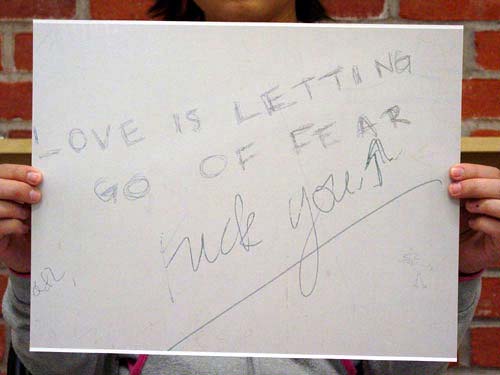 LOVE IS LETTING
GO OF FEAR
Fuck you